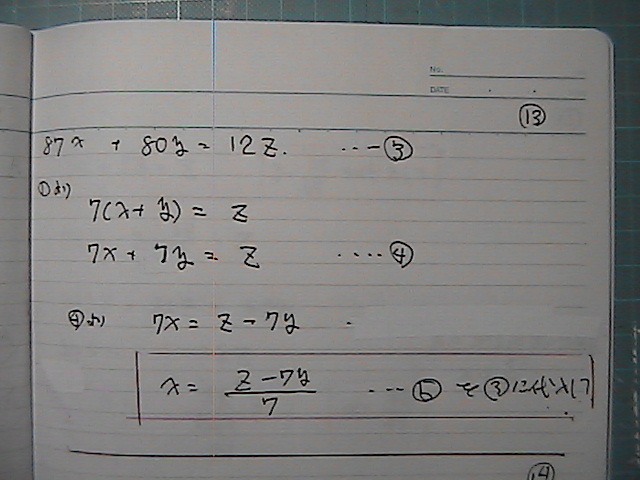 No.
DATE
⑬
87x + 80y = 12z. ---- ③
①より
7(x + y) = z
7x + 7y = z ---- ④
④より 7x = z - 7y
x = (z - 7y)/7 --- ⑤ を③に代入して
⑭